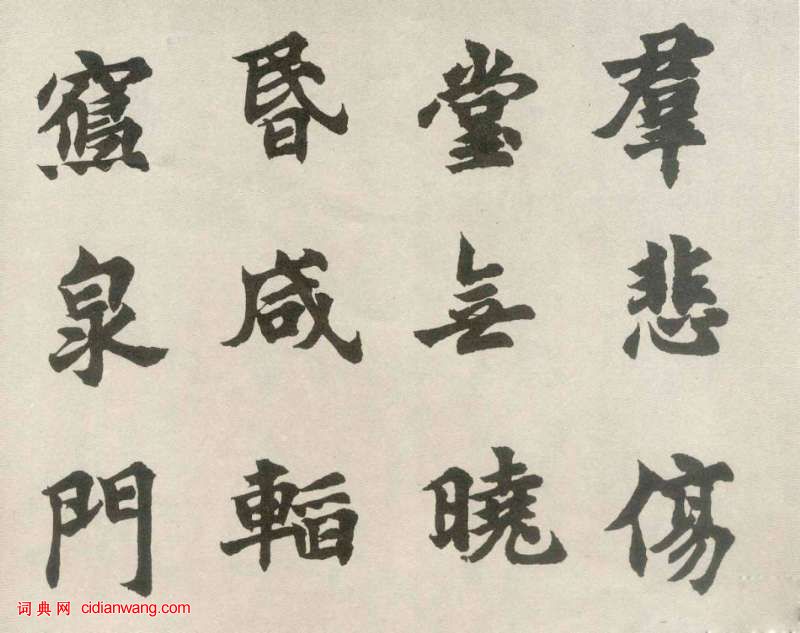 羣悲傷
堂無曉
昬咸
泉門
词典网 cidianwang.com